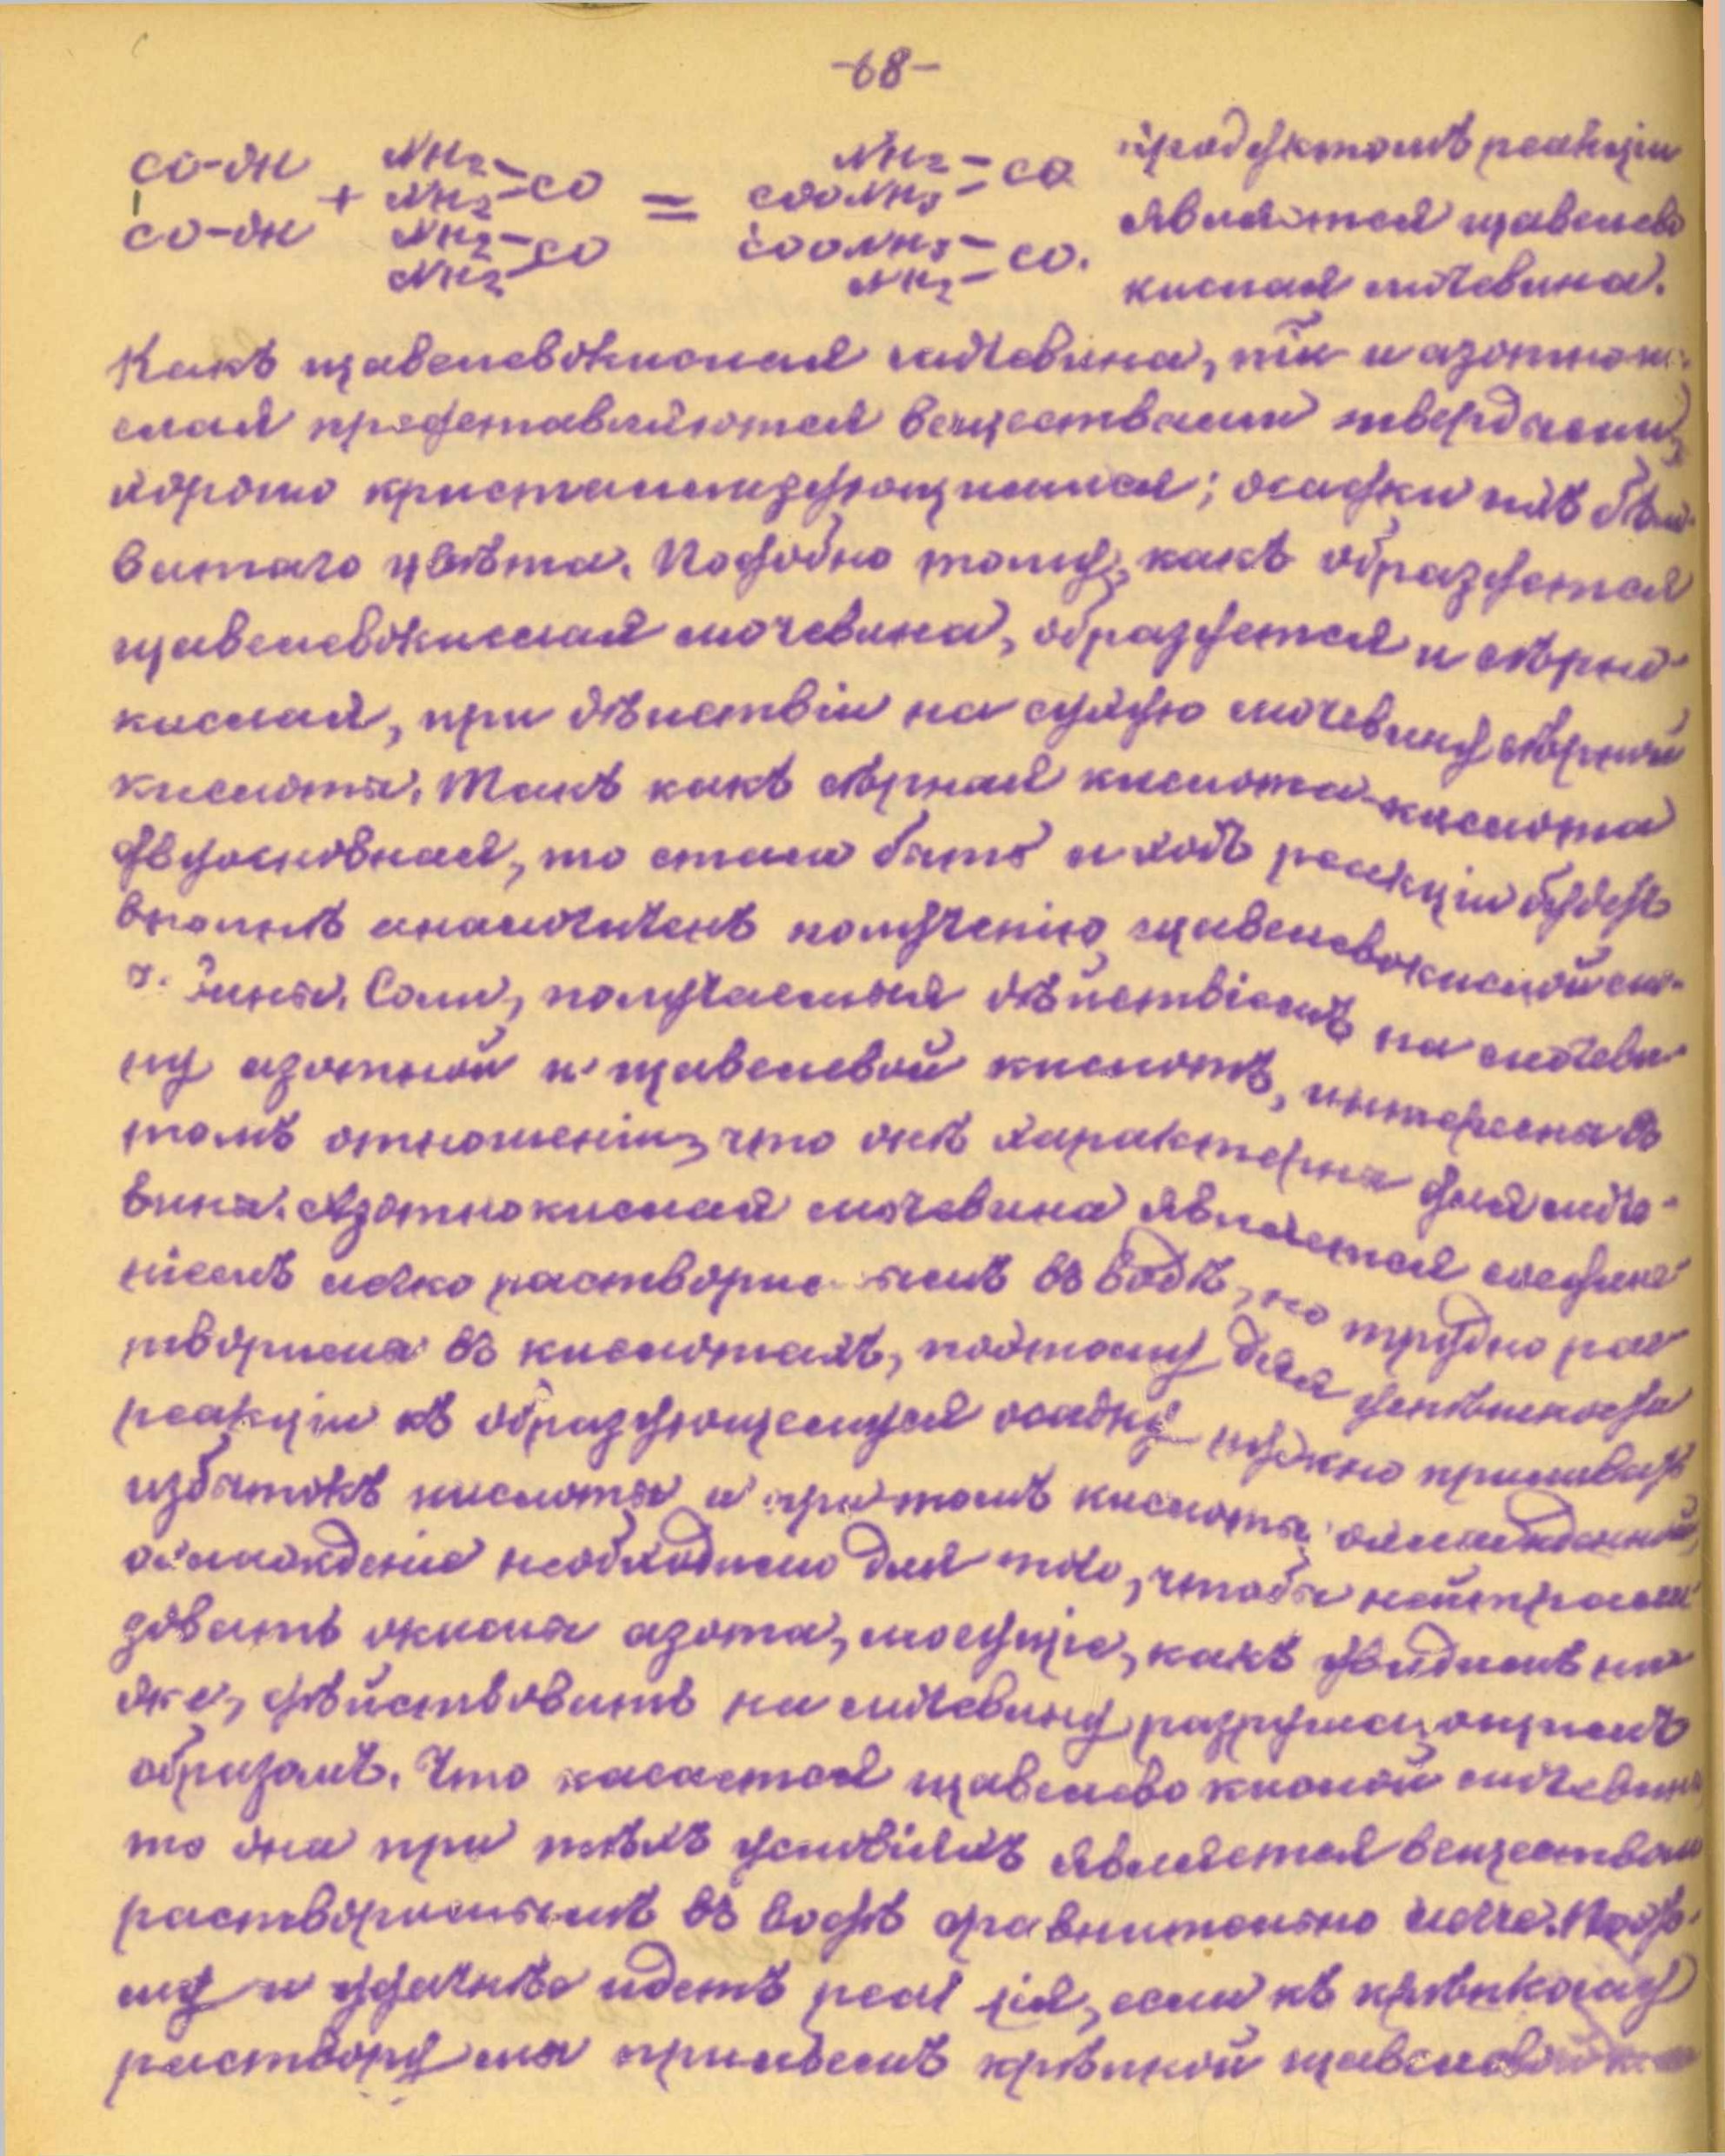 -68-
CO-OH + NH2-NH2=CO NH2-CO = NH2=CO COONH3 продуктомъ реакціи
CO-OH NH2=CO NH2 COONH3=CO. NH2 является щавелево
кислая мочевина.
Какъ щавелевокислая мочевина, такъ и азотноки-
слая представляются веществами твердыми,
хорошо кристаллизующимися; осадки ихъ бѣло-
ватаго цвѣта. Подобно тому, какъ образуется
щавелевокислая мочевина, образуется и сѣрно-
кислая, при дѣйствіи на сухую мочевину сѣрной
кислоты. Такъ какъ сѣрная кислота кислота
двуосновная, то стало быть и ходъ реакціи будетъ
вполнѣ аналогиченъ полученію щавелевокислой мо-
чевины. Соли, получаемыя дѣйствіемъ на мочеви-
ну азотной и щавелевой кислотъ, интересны въ
томъ отношеніи, что онѣ характерны для моче-
вины. Азотнокислая мочевина является соедине-
ніемъ легко растворимымъ въ водѣ, но трудно рас
творима въ кислотахъ, поэтому для успѣшности
реакціи къ образующемуся осадку нужно приливать
избытокъ кислоты и притомъ кислоты охлажденной,
охлажденіе необходимо для того, чтобы нейтрали
зовать окислы азота, могущіе, какъ увидимъ ни
же, дѣйствовать на мочевину разрушающимъ
образомъ. Что касается щавелево кислой мочевины,
то она при тѣхъ условіяхъ является веществомъ
растворимымъ въ водѣ сравнительно легче. Поэто-
му и удачнѣе идетъ реакція, если къ крѣпкому
раствору мы прильемъ крѣпкой щавелевой